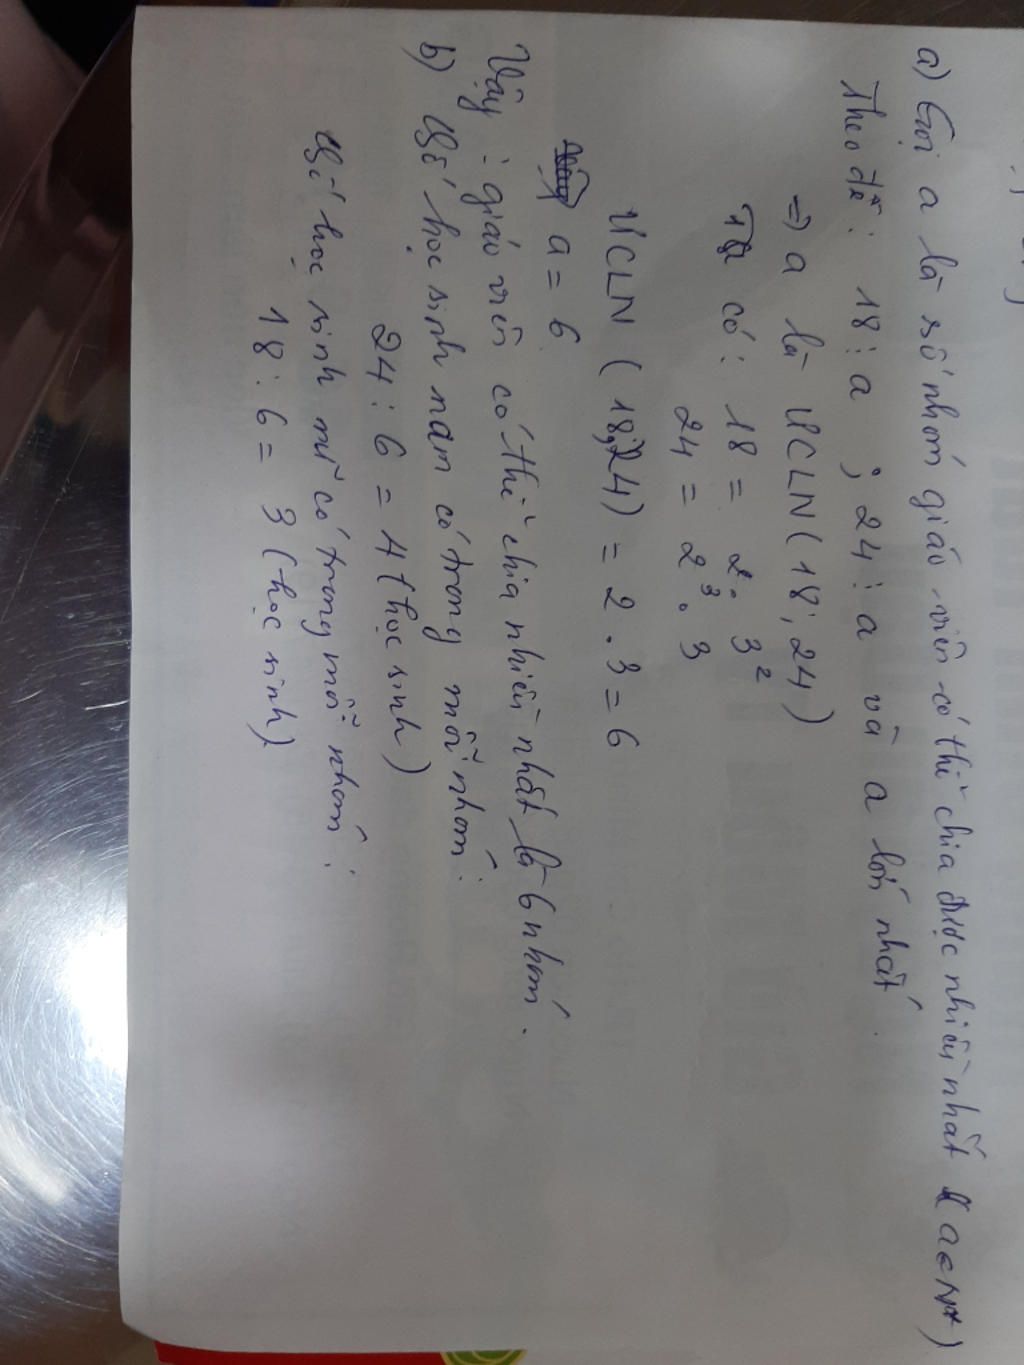 a) Gọi a là số nhóm giáo viên có thể chia được nhiều nhất (a∈N*)
Theo đề: 18 ⋮ a ; 24 ⋮ a và a lớn nhất.
⇒ a là ƯCLN (18; 24)
Ta có: 18 = 2 . 3²
24 = 2³ . 3
ƯCLN (18; 24) = 2 . 3 = 6
a = 6
Vậy : giáo viên có thể chia nhiều nhất là 6 nhóm.
b) Số học sinh nam có trong mỗi nhóm :
24 : 6 = 4 (học sinh)
Số học sinh nữ có trong mỗi nhóm :
18 : 6 = 3 (học sinh)